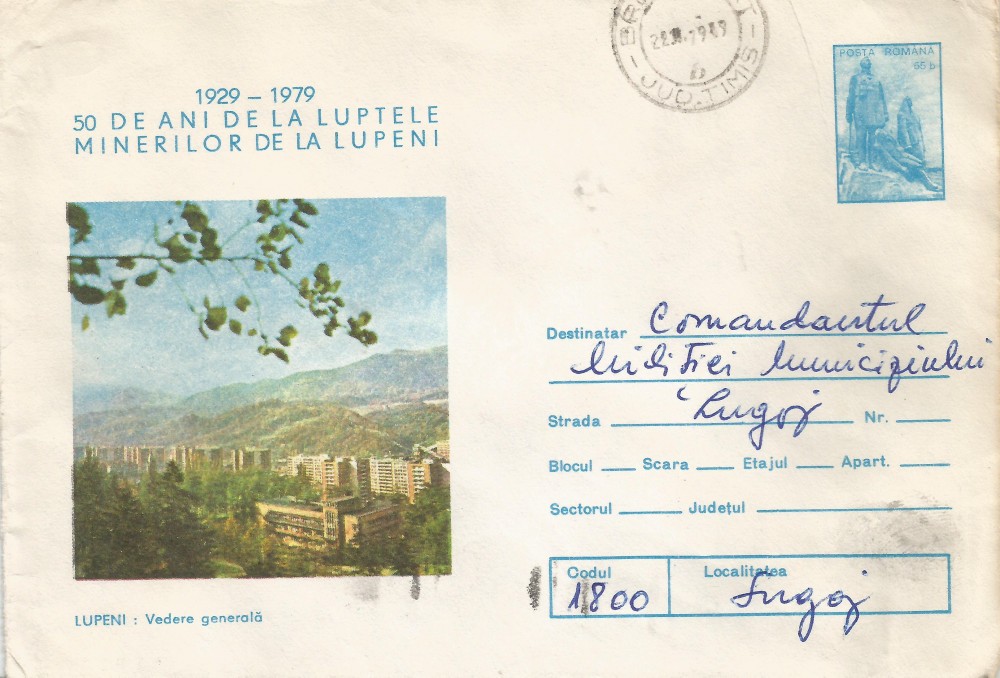 1929 – 1979
50 DE ANI DE LA LUPTELE
MINERILOR DE LA LUPENI
22.XI.1979
b
– JUD. TIMIȘ –
POSTA ROMANA
55 b
Destinatar Comandantul
Miliției Municipiului
Strada Lugoj Nr.
Blocul Scara Etajul Apart.
Sectorul Județul
Codul Localitatea
1800 Lugoj
LUPENI : Vedere generală